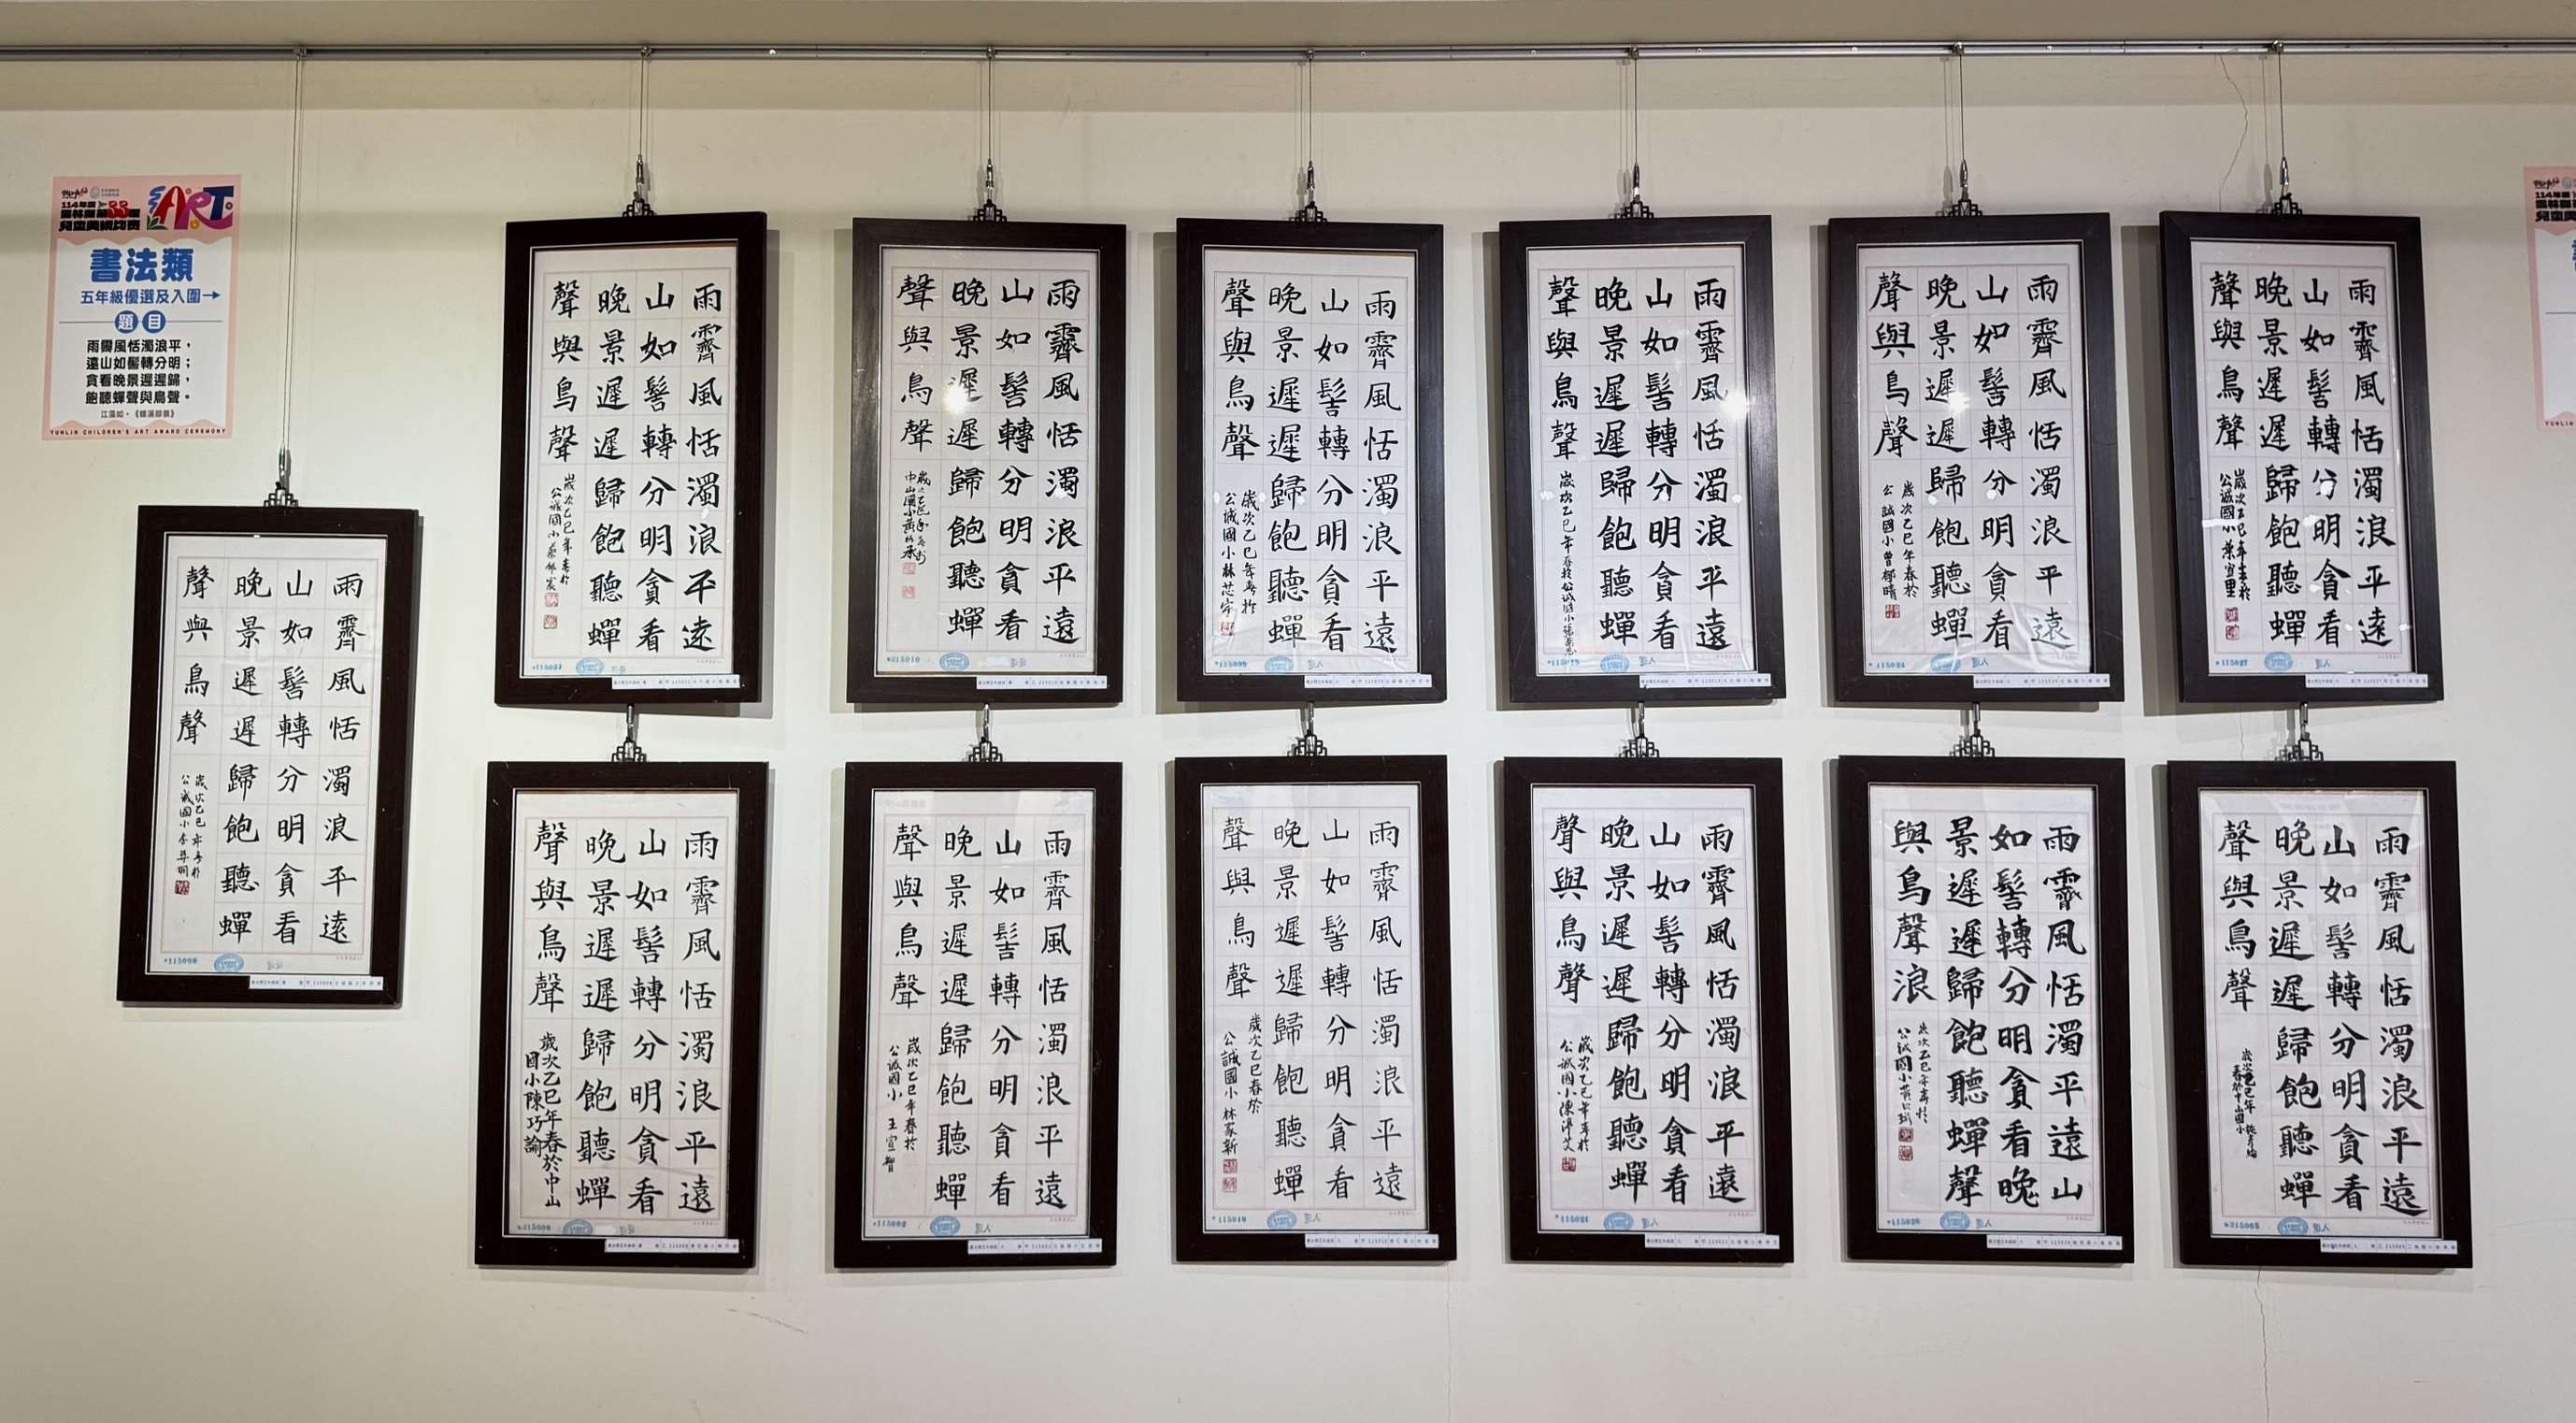 114年度
雲林縣第33屆
兒童美術比賽
ART
書法類
五年級優選及入圍→
題目
雨霽風恬濁浪平，
遠山如髻轉分明；
貪看晚景遲遲歸，
飽聽蟬聲與鳥聲。
YUNLIN CHILDREN'S ART AWARD CEREMONY
雨霽風恬濁浪平遠
山如髻轉分明貪看
晚景遲遲歸飽聽蟬
聲與鳥聲
歲次乙巳年春於
公誠國小
雨霽風恬濁浪平遠
山如髻轉分明貪看
晚景遲遲歸飽聽蟬
聲與鳥聲
歲次乙巳年春於
公誠國小
雨霽風恬濁浪平遠
山如髻轉分明貪看
晚景遲遲歸飽聽蟬
聲與鳥聲
歲次乙巳年春於
中山國小黃
115010
雨霽風恬濁浪平遠
山如髻轉分明貪看
晚景遲遲歸飽聽蟬
聲與鳥聲
歲次乙巳年春於
公誠國小林芯
雨霽風恬濁浪平遠
山如髻轉分明貪看
晚景遲遲歸飽聽蟬
聲與鳥聲
歲次乙巳年春於公誠國小張
雨霽風恬濁浪平遠
山如髻轉分明貪看
晚景遲遲歸飽聽蟬
聲與鳥聲
歲次乙巳年春於
公誠國小曾郁晴
115024
雨霽風恬濁浪平遠
山如髻轉分明貪看
晚景遲遲歸飽聽蟬
聲與鳥聲
歲次乙巳年春於
公誠國小葉宜里
115027
雨霽風恬濁浪平遠
山如髻轉分明貪看
晚景遲遲歸飽聽蟬
聲與鳥聲
歲次乙巳年春於中山
國小陳巧諭
雨霽風恬濁浪平遠
山如髻轉分明貪看
晚景遲遲歸飽聽蟬
聲與鳥聲
歲次乙巳年春於
公誠國小 王宣智
115002
雨霽風恬濁浪平遠
山如髻轉分明貪看
晚景遲遲歸飽聽蟬
聲與鳥聲
歲次乙巳春於
公誠國小 林家新
雨霽風恬濁浪平遠
山如髻轉分明貪看
晚景遲遲歸飽聽蟬
聲與鳥聲
歲次乙巳年春於
公誠國小陳渟艾
115021
雨霽風恬濁平遠山
如髻轉分明貪看晚
景遲遲歸飽聽蟬聲
與鳥聲浪
歲次乙巳年春於
公誠國小黃
雨霽風恬濁浪平遠
山如髻轉分明貪看
晚景遲遲歸飽聽蟬
聲與鳥聲
歲次乙巳年
春於中山國小